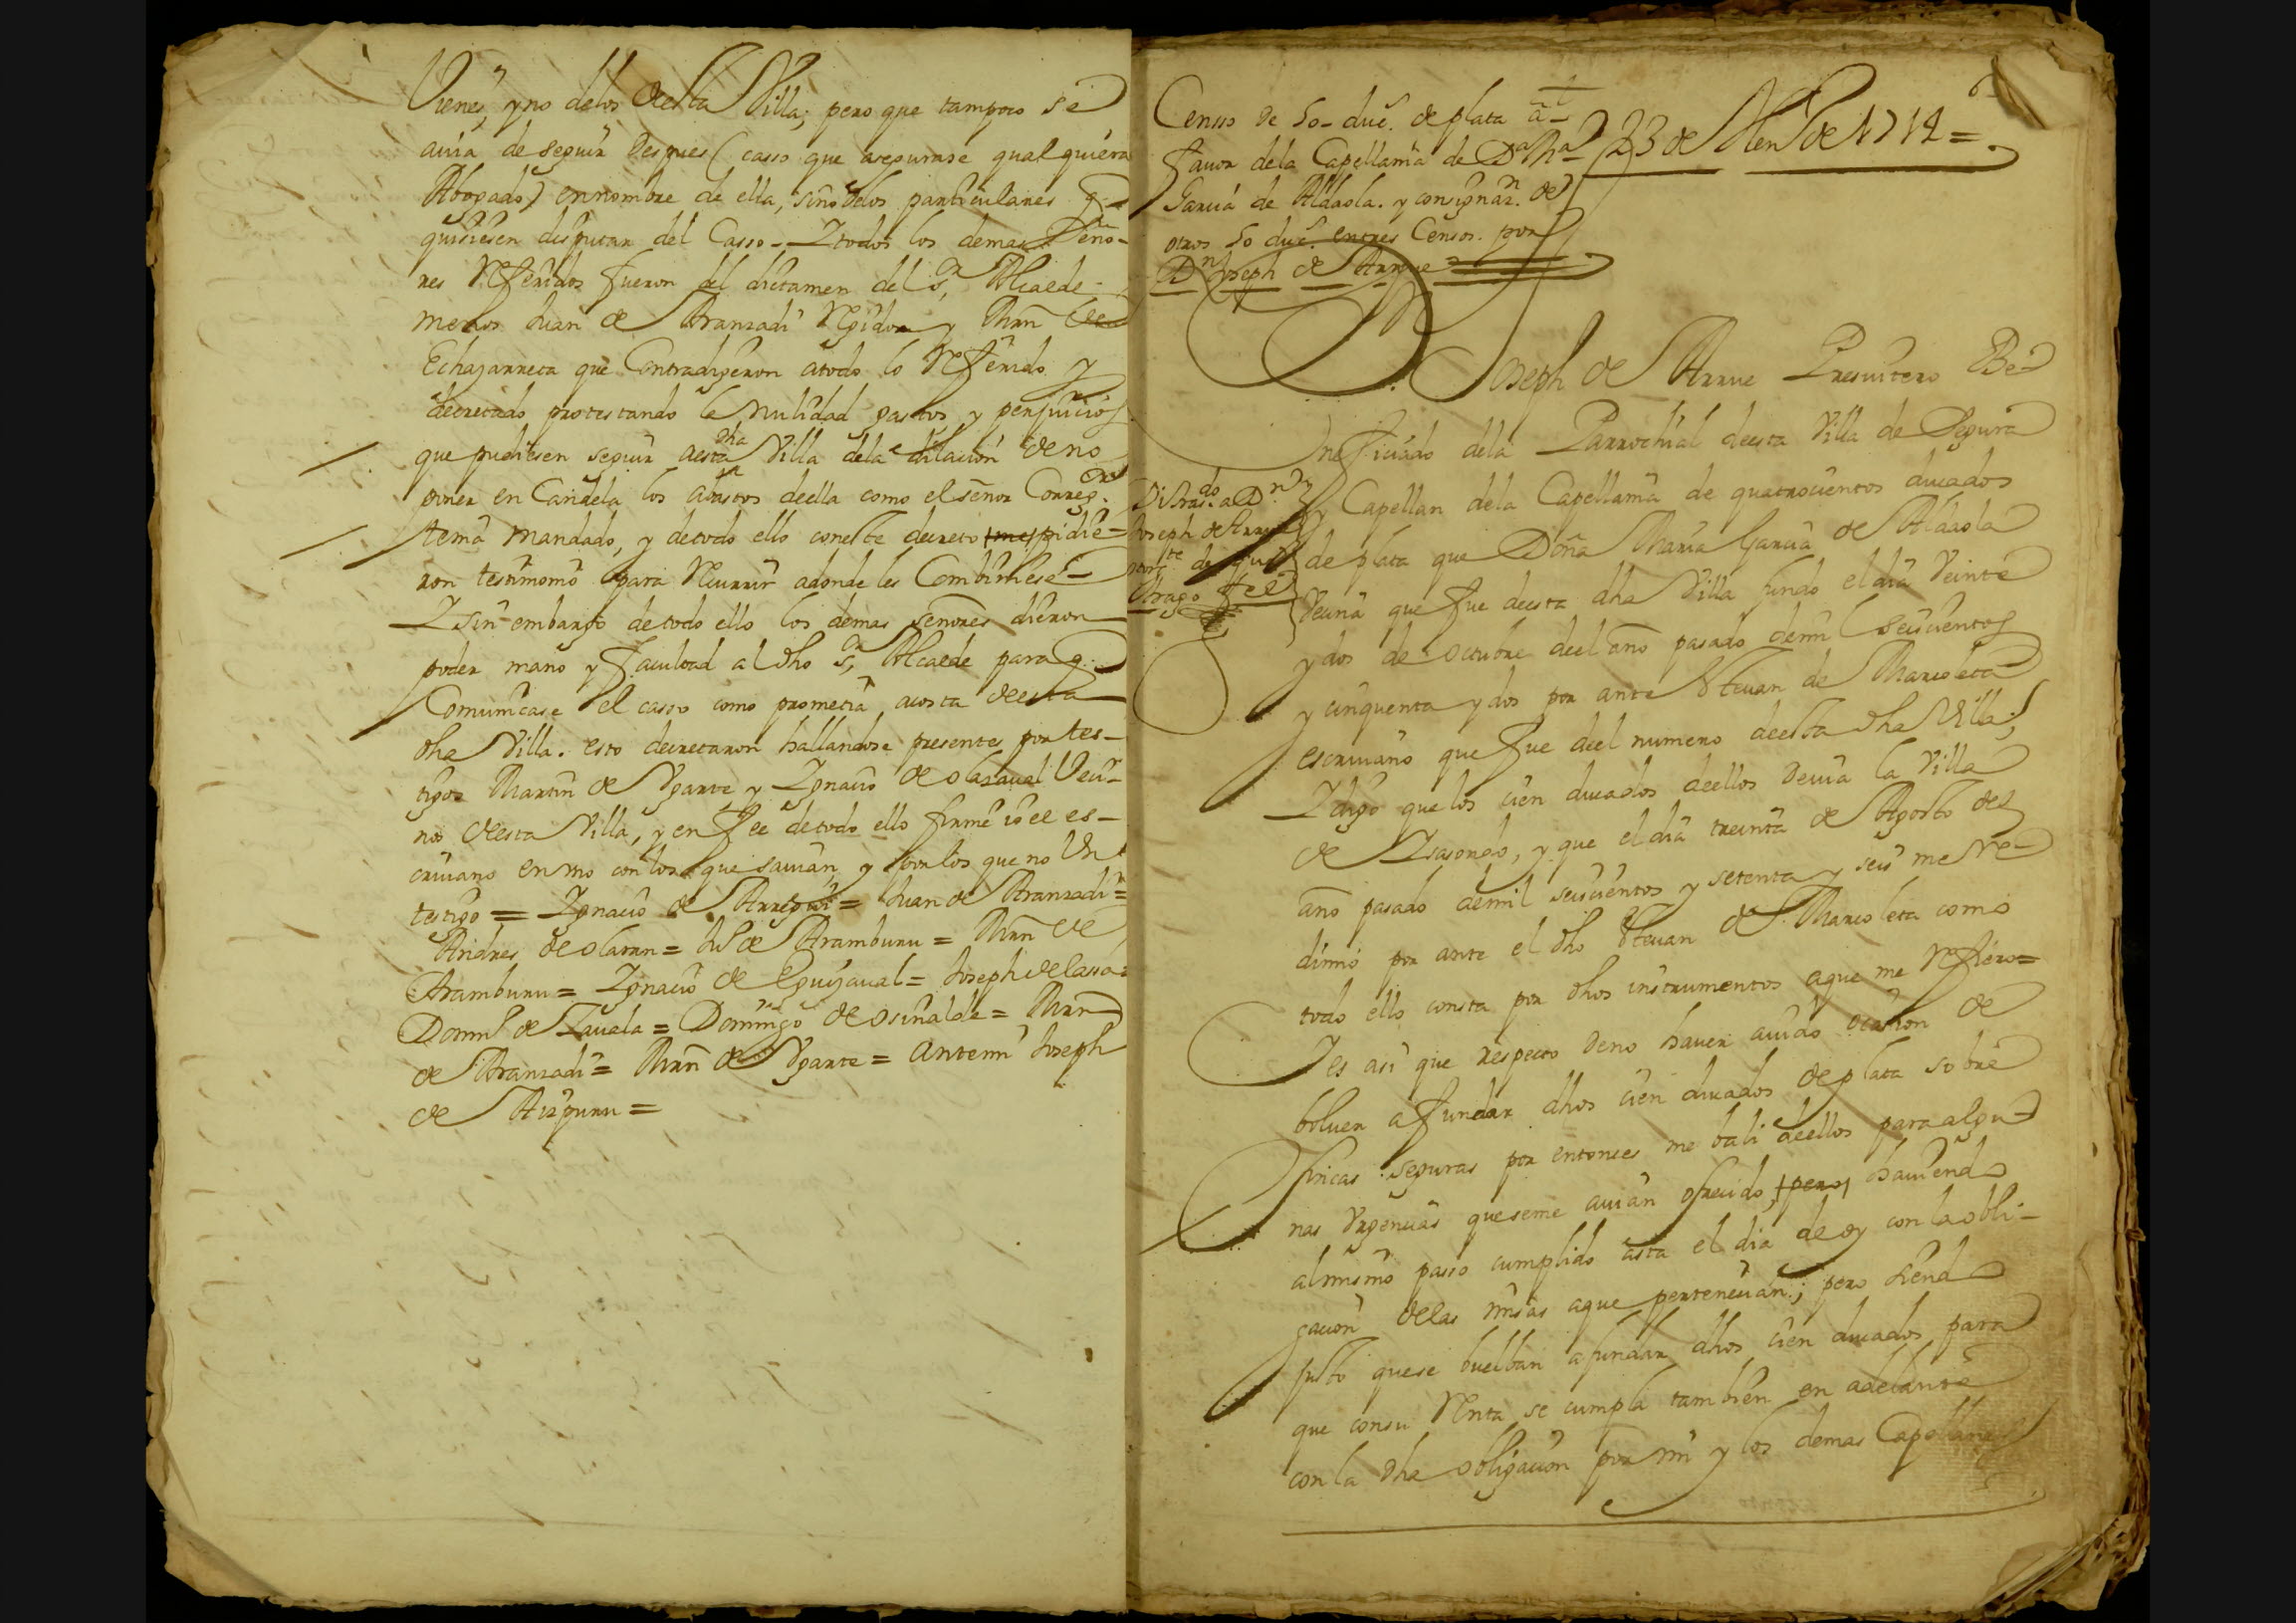 Vienes, y no delos desta Villa; pero que tampoco se
auia de seguir despues (casso que asegurase qualquiera
Abogado) en nombre de ella, sino delos particulares q.
quisiesen disputar del Casso - Y todos los demas Seño-
res Referidos fueron del dictamen del Sr. Alcaede
menos Juan de Aranzadi Regidor y Mrn de
Echajarreta que Contradigeron atodo lo Referido y
decretado protestando la nulidad gastos y perjuicios
que pudiesen seguir aesta dha Villa dela dilacion de no
poner en Candela los abastos deella como el señor Correg.or
tenia mandado, y detodo ello coneste decreto pidie-
ron testimonio para Recurrir adonde les Combiniese -
Y sin embargo detodo ello los demas señores dieron
poder mano y facultad al dho Sr. Alcaede para q.
Comunicase el casso como prometia acosta deesta
dha Villa. esto decretaron hallandose presentes por tes-
tigos Martin de Vgarte y Ignacio de olazaual Veci-
nos deesta Villa, y en fee detodo ello firme io el es-
criuano en vno con los que sauian, y por los que no Vn
testigo = Ignacio de Arregui = Juan de Aranzadi =
Andres de olaran = de Aramburu = Mrn de
Aramburu = Ignacio de Eguizaual = Joseph de lassa =
Domi.o de Zauala = Domingo de osinalde = Mrn
de Aranzadi = Mrn de Vgarte = Antemi Joseph
de Aizpuru =
Censso de 50- duc.s de plata a-
fauor dela Capellania de Da. Ma.
Garcia de Aldaola. y consignaz.n de
otros 50 duc.s entres Censos. por
Dn Joseph de Arrue
23 de Hen.o de 1714 =
Joseph de Arrue Presuitero Be-
neficiado dela Parrochial deesta Villa de Segura
y Capellan dela Capellania de quatrocientos ducados
de plata que Doña Maria Garcia de Aldaola
Vecina que fue deesta dha Villa fundo el dia Veinte
y dos de octubre deel año pasado demil seiscientos
y cinquenta y dos por ante Esteuan de Marcoleta
escriuano que fue deel numero deesta dha Villa;
Y digo que los cien ducados deellos deuia la Villa
de Ysasondo, y que el dia treinta de Agosto del
año pasado demil seiscientos y setenta y seis me re-
dimio por ante el dho Esteuan de Marcoleta como
todo ello consta por dhos instrumentos aque me Refiero =
Y es asi que respecto deno hauer auido ocasion de
boluer afundar dhos cien ducados de plata sobre
fincas seguras por entonces me bali deellos para algu-
nas Vrgencias queseme auian ofrecido, pero hauiendo
almismo passo cumplido asta el dia de oy con la obli-
gacion delas misas aque pertenecian; pero siendo
justo quese buelban afundar dhos cien ducados para
que consu Renta se cumpla tambien en adelante
con la dha obligacion por mi y los demas Capellanes
Di tras.do a Dn
Joseph de Arrue
otorg.te de que
Hago fee